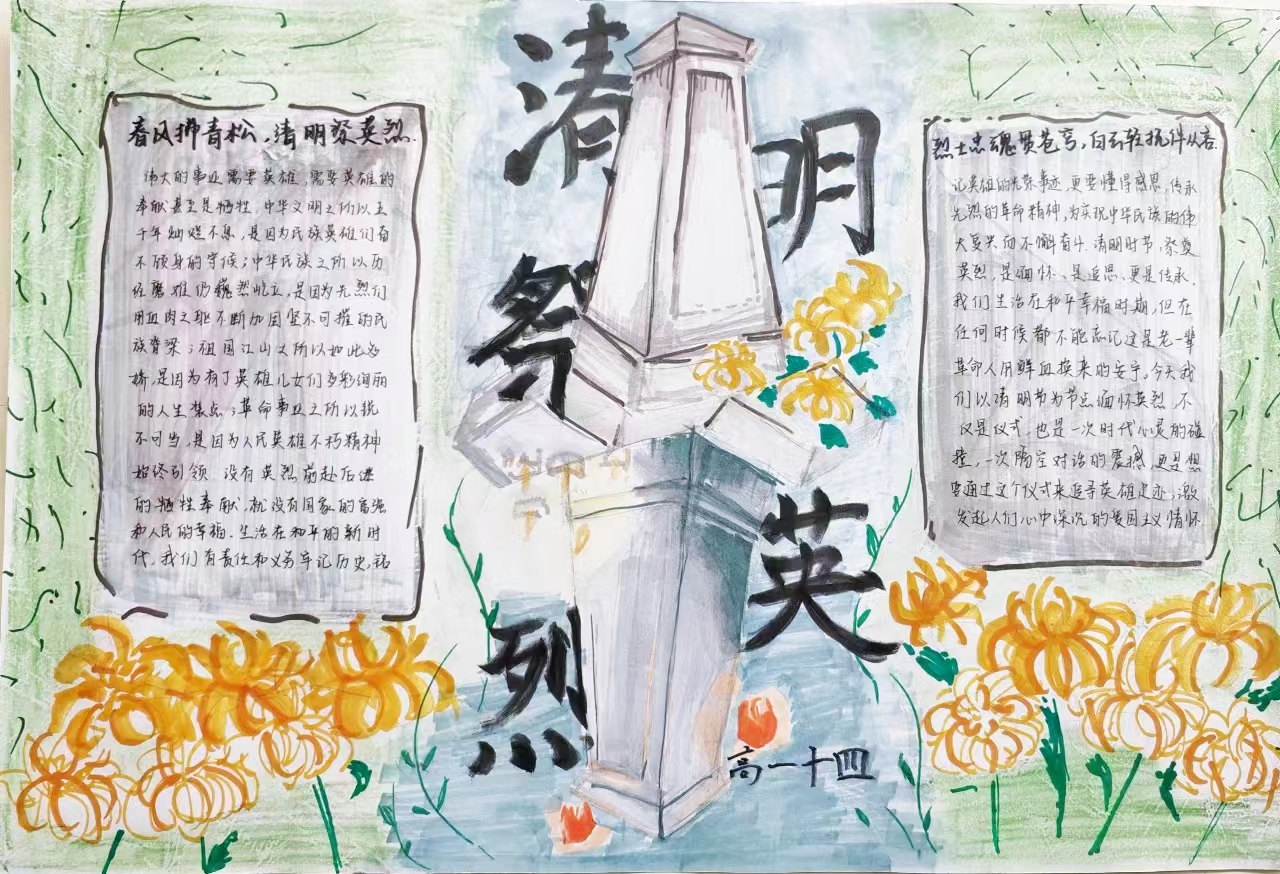 清明祭英烈
春风拂青松，清明祭英烈.
伟大的事业需要英雄，需要英雄的
奉献甚至是牺牲.中华文明之所以五
千年灿烂不息，是因为民族英雄们奋
不顾身的守候；中华民族之所以历
经磨难仍巍然屹立，是因为先烈们
用血肉之躯不断加固坚不可摧的民
族脊梁；祖国江山之所以如此多
娇，是因为有了英雄儿女们多彩绚丽
的人生装点；革命事业之所以锐
不可当，是因为人民英雄不朽精神
始终引领.没有英烈前赴后继
的牺牲奉献，就没有国家的富强
和人民的幸福.生活在和平的新时
代，我们有责任和义务牢记历史，铭
烈士忠魂贯苍穹，白云轻抚伴从容.
记英雄的光荣事迹，更要懂得感恩，传承
先烈的革命精神，为实现中华民族的伟
大复兴而不懈奋斗.清明时节，祭奠
英烈，是缅怀、是追思、更是传承，
我们生活在和平幸福时期，但在
任何时候都不能忘记这是老一辈
革命人用鲜血换来的安宁，今天我
们以清明节为节点缅怀英烈，不
仅是仪式，也是一次时代心灵的碰
撞，一次隔空对话的震撼，更是想
要通过这个仪式来追寻英雄足迹，激
发起人们心中深沉的爱国主义情怀
高一十四